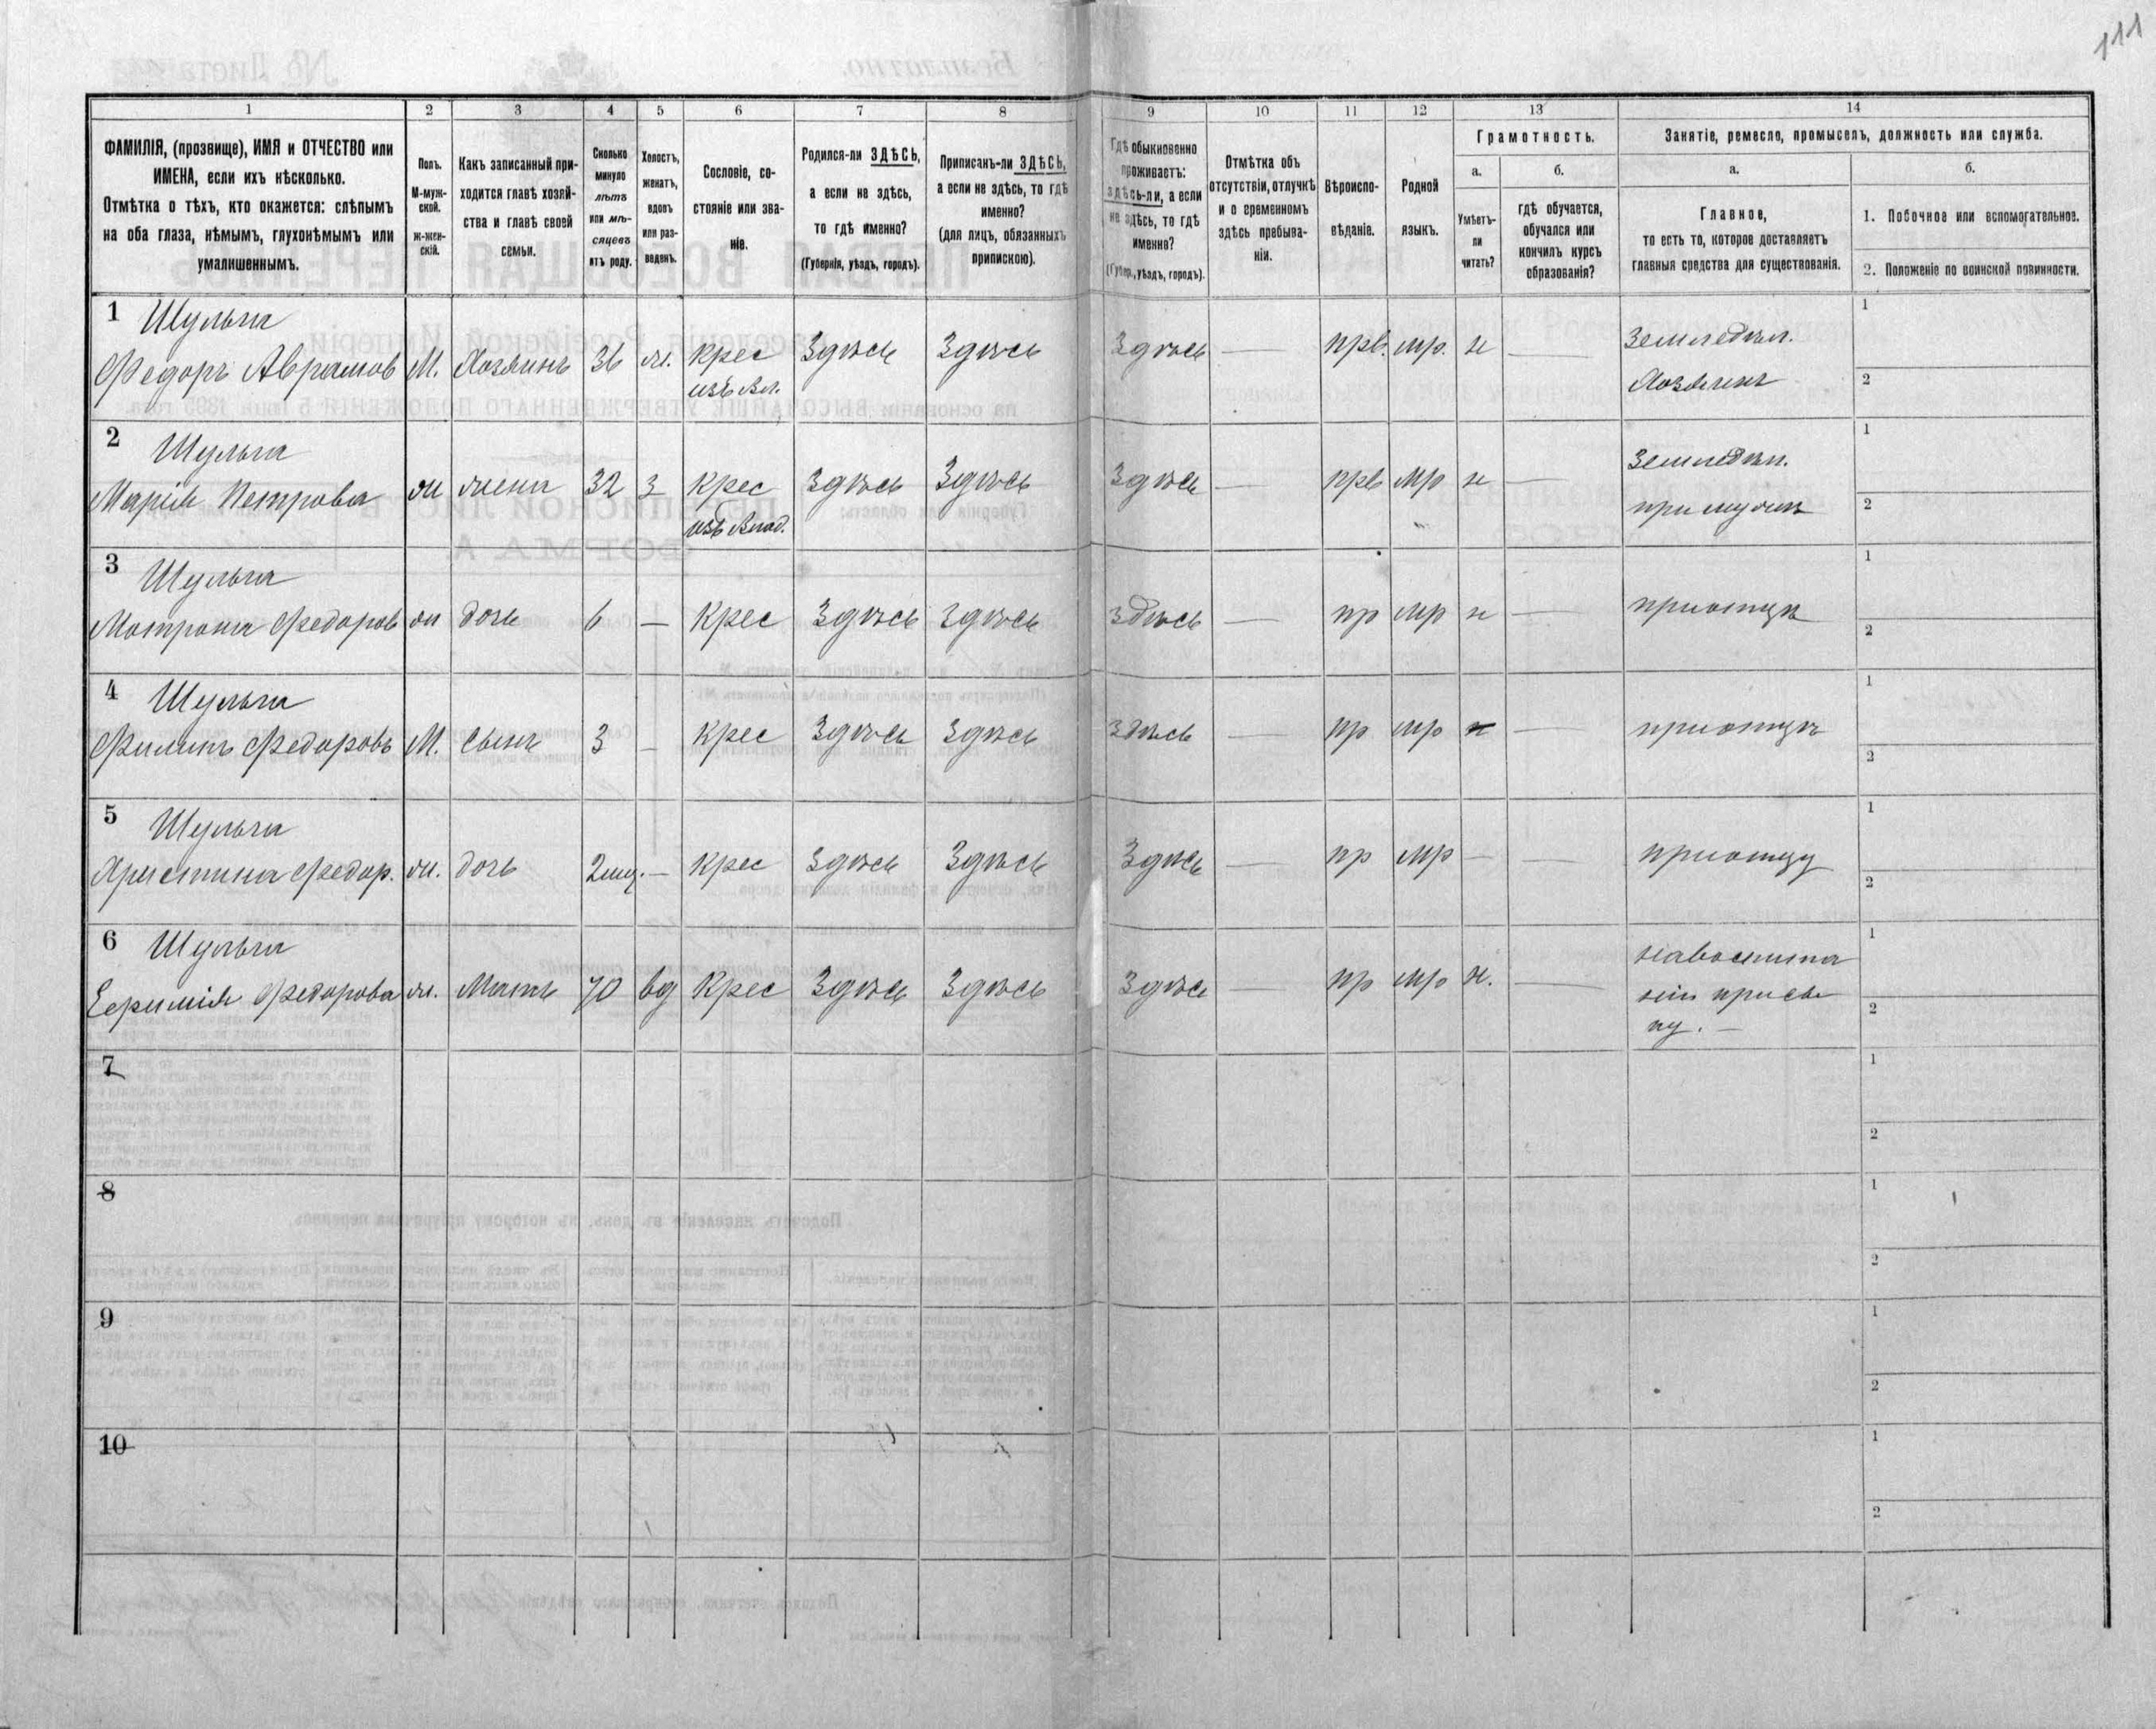 111
1
2
3
4
5
6
7
8
9
10
11
12
13
14
ФАМИЛІЯ, (прозвище), ИМЯ и ОТЧЕСТВО или
ИМЕНА, если ихъ нѣсколько.
Отмѣтка о тѣхъ, кто окажется: слѣпымъ
на оба глаза, нѣмымъ, глухонѣмымъ или
умалишеннымъ.
Полъ.
М-муж-
ской.
Ж-жен-
скій.
Какъ записанный при-
ходится главѣ хозяй-
ства и главѣ своей
семьи.
Сколько
минуло
лѣтъ
или мѣ-
сяцевъ
отъ роду.
Холостъ,
женатъ,
вдовъ
или раз-
веденъ.
Сословіе, со-
стояніе или зва-
ніе.
Родился-ли ЗДѢСЬ,
а если не здѣсь,
то гдѣ именно?
(Губернія, уѣздъ, городъ).
Приписанъ-ли ЗДѢСЬ,
а если не здѣсь, то гдѣ
именно?
(для лицъ, обязанныхъ
припискою).
Гдѣ обыкновенно
проживаетъ:
здѣсь-ли, а если
не здѣсь, то гдѣ
именно?
(Губер., уѣздъ, городъ).
Отмѣтка объ
отсутствіи, отлучкѣ
и о временномъ
здѣсь пребыва-
ніи.
Вѣроиспо-
вѣданіе.
Родной
языкъ.
Грамотность.
а.
Умѣетъ-
ли
читать?
б.
гдѣ обучается,
обучался или
кончилъ курсъ
образованія?
Занятіе, ремесло, промыселъ, должность или служба.
а.
Главное,
то есть то, которое доставляетъ
главныя средства для существованія.
б.
1. Побочное или вспомогательное.
2. Положеніе по воинской повинности.
1 Шульга
Федоръ Аврамов М. Хозяинъ 36 ж. крес Здѣсь Здѣсь Здѣсь — прв. мр. н — Земледѣл.
изъ Вл. Хозяинъ
1
2
2 Шульга
Марія Петрова ж жена 32 з крес Здѣсь Здѣсь Здѣсь — прв мр н — Земледѣл.
изъ Влад. при мужѣ
1
2
3 Шульга
Мотрона Федоров ж дочь 6 — Крес Здѣсь Здѣсь здѣсь — пр мр н — при отцѣ
1
2
4 Шульга
Филипъ Федоровъ М. сынъ 3 — крес Здѣсь Здѣсь здѣсь — пр мр н — при отцѣ
1
2
5 Шульга
Христина Федор. ж. дочь 2 мц. — крес Здѣсь Здѣсь Здѣсь — пр мр — — при отцу
1
2
6 Шульга
Ефимія Федорова ж. Мать 70 вд Крес Здѣсь Здѣсь Здѣсь — пр мр н. —
при сы
ну. —
1
2
7
1
2
8
1
2
9
1
2
10
1
2